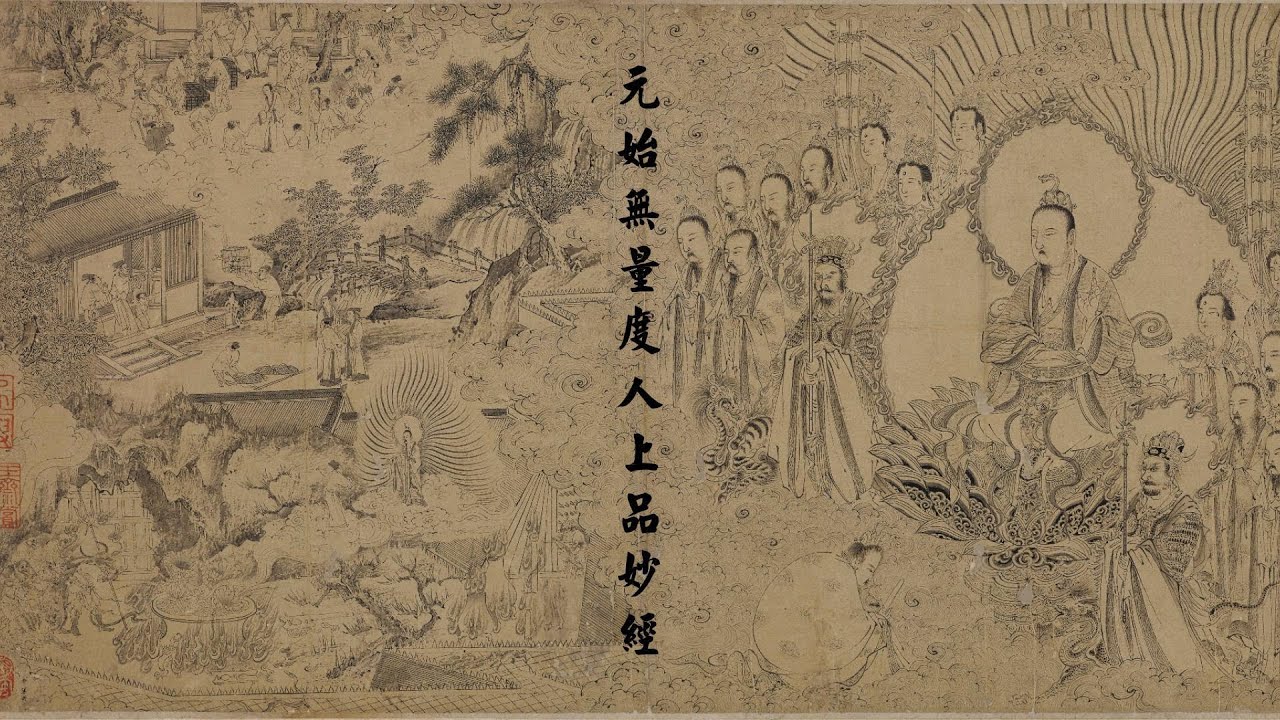 元始無量度人上品妙經